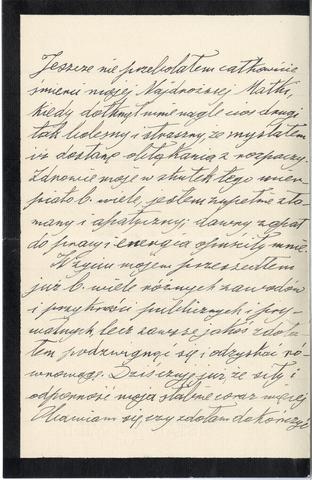 Jeszcze nie przebolałem całkowicie
śmierci mojej Najdroższej Matki,
kiedy dotknął mnie nagle cios drugi
tak bolesny i straszny, że myślałem
iż dostanę obłąkania z rozpaczy.
Zdrowie moje w skutek tego ucier-
piało b. wiele, jestem zupełnie zła-
many i apatyczny; dawny zapał
do pracy i energia opuściły mnie.
W życiu mojem przeszedłem
już b. wiele różnych zawodów
i przykrości publicznych i pry-
watnych, lecz zawsze jakoś zdoła-
łem podźwignąć się i odzyskać ró-
wnowagę. Dziś czuję już że siły i
odporność moja słabnie coraz więcej
Obawiam się, czy zdołam dokończyć